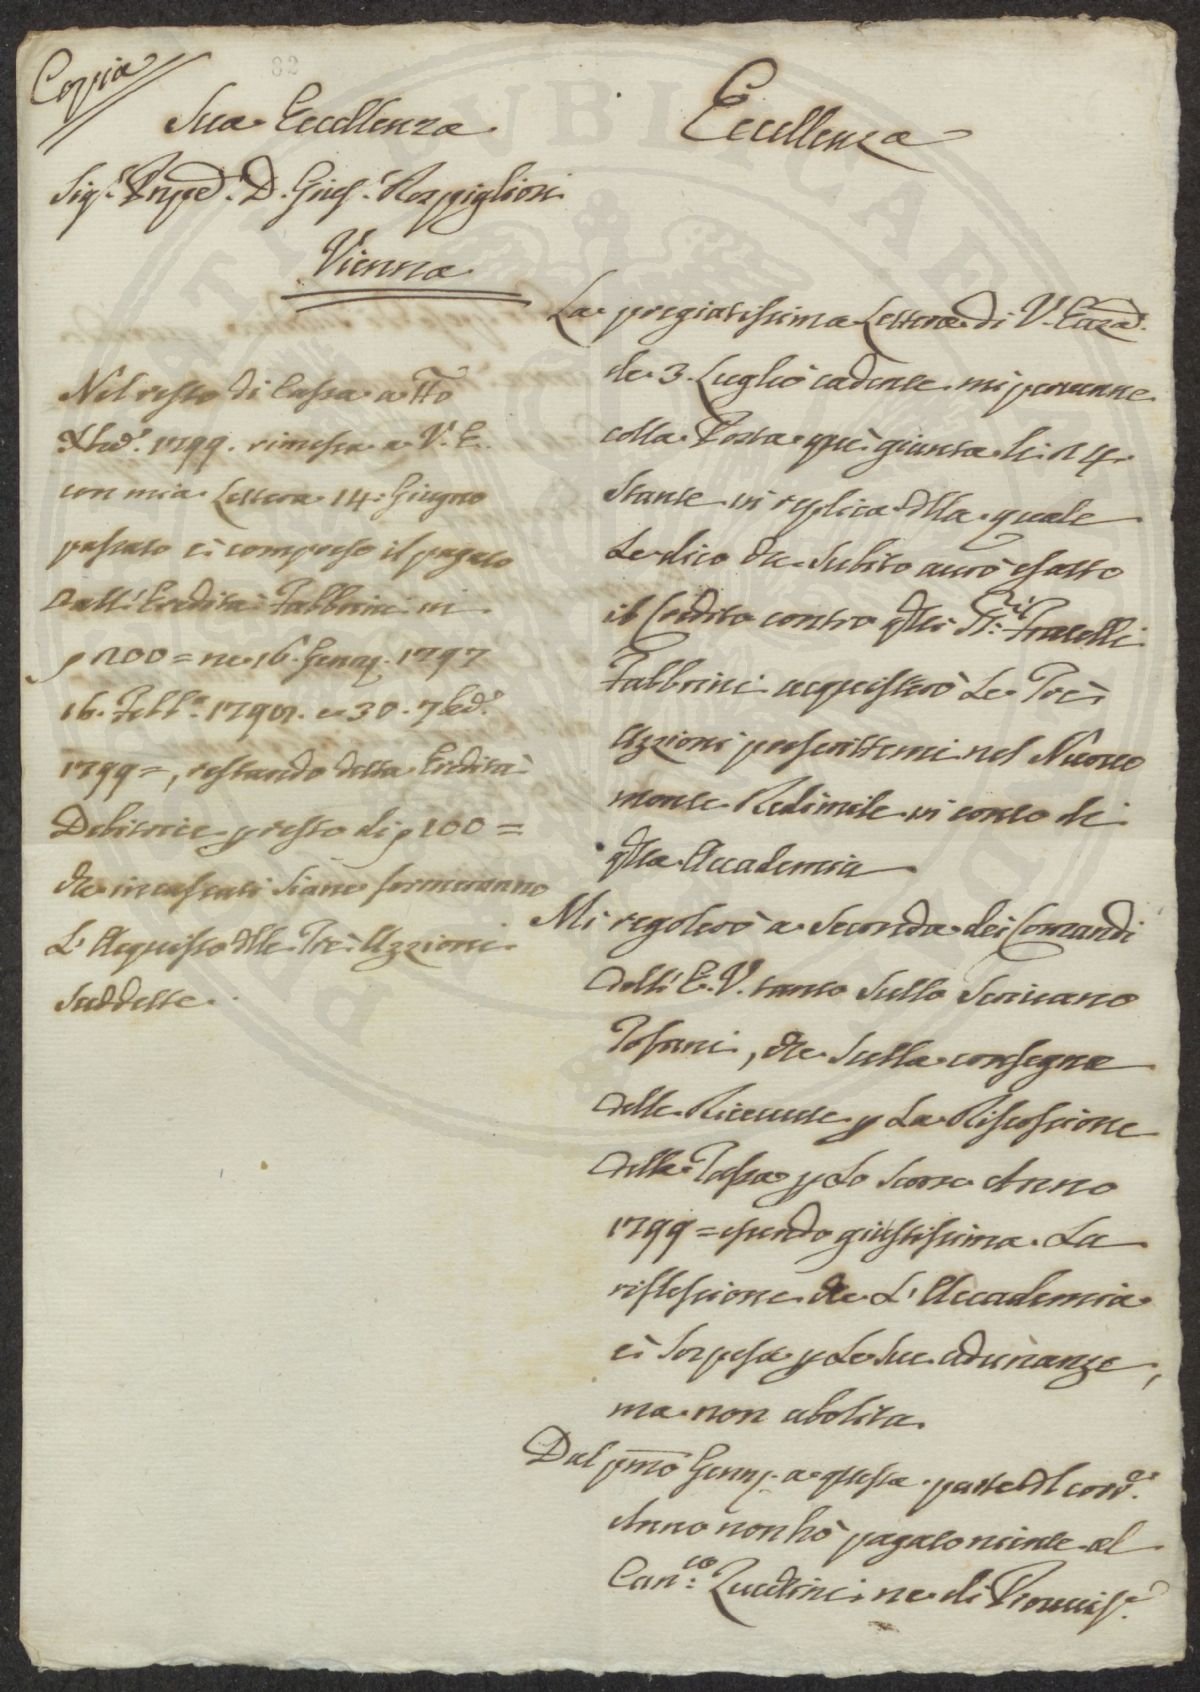 Copia
82
Sua Eccellenza
Sig.r Presid. D. Gius. Rospigliosi
Vienna
Nel resto di Cassa a tto
Xbre. 1799. rimessa a V. E.
con mia Lettera 14. Giugno
passato è compreso il pagato
dall' Eredità Fabbrini in
p 200 = ne 16. Genn. 1797
16. Febb.o 1798. e 30. 7bre.
1799 =, restando detta Eredità
Debitrice p resto di p 100 =
che incassati Siano formeranno
L' Acquisto delle Trè Azzioni
Suddette.
Eccellenza
La pregiatissima Lettera di V. Ecza.
de 3. Luglio cadente mi pervenne
colla Posta quì giunta li 14.
stante in replica della quale
Le dico che subito avrò esatto
il Credito contro qsti SS.ri Fratelli
Fabbrini acquisterò Le Trè
Azzioni prescrittemi nel Nuovo
monte Redimile in conto di
qsta Accademia
Mi regolerò a Seconda dei Comandi
dell' E. V. tanto Sullo Scrivano
Tofani, che Sulla consegna
delle Ricevute p La Riscossione
della Tassa p Lo Scorso Anno
1799 = essendo giustissima La
riflessione che L' Accademia
è Sorpesa p Le Sue adunanze,
ma non abolita.
Dal pmo Genn. a questa parte del corr.e
Anno non hò pagato niente al
Can.co Zucchini ne di Provvis.e